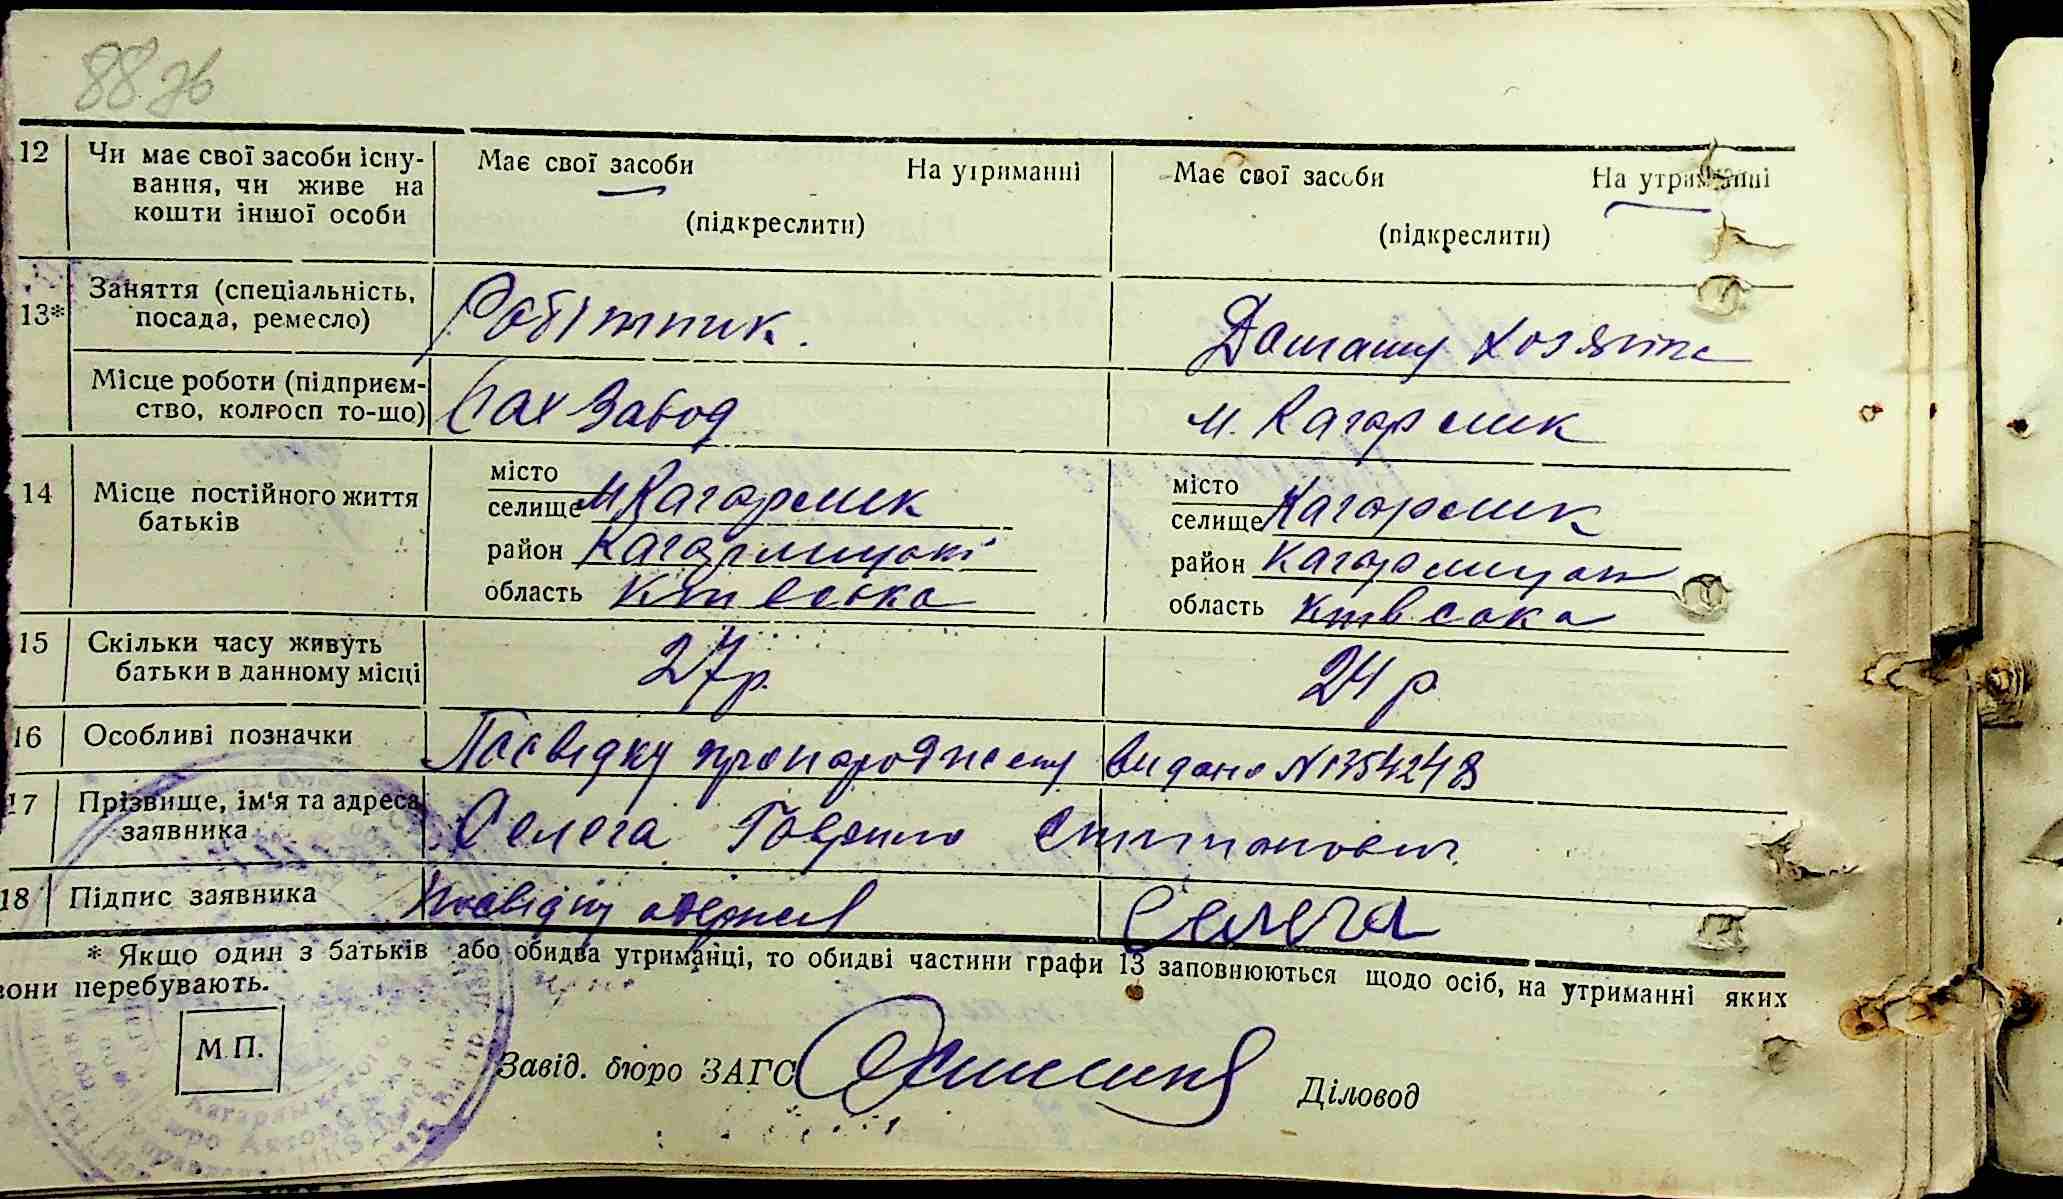 88 зв
12 Чи має свої засоби існу-
вання, чи живе на
кошти іншої особи
Має свої засоби На утриманні
(підкреслити)
Має свої засоби На утриманні
(підкреслити)
13* Заняття (спеціальність,
посада, ремесло)
Робітник.
Домашу хозяйка
Місце роботи (підприєм-
ство, колгосп то-що)
Сах Завод
м. Кагарлик
14 Місце постійного життя
батьків
місто
селище м Кагарлик
район Кагарлицькі
область Київська
місто
селище Кагарлик
район Кагарлицьк
область Київська
15 Скільки часу живуть
батьки в данному місці
27р.
24 р
16 Особливі позначки
Посвідку про народження видано №1354248
17 Прізвище, ім'я та адреса
заявника
Селега Гаврило Степанович.
18 Підпис заявника
Посвідку одержав Селега
* Якщо один з батьків або обидва утриманці, то обидві частини графи 13 заповнюються щодо осіб, на утриманні яких
вони перебувають.
М.П.
Завід. бюро ЗАГС
Діловод